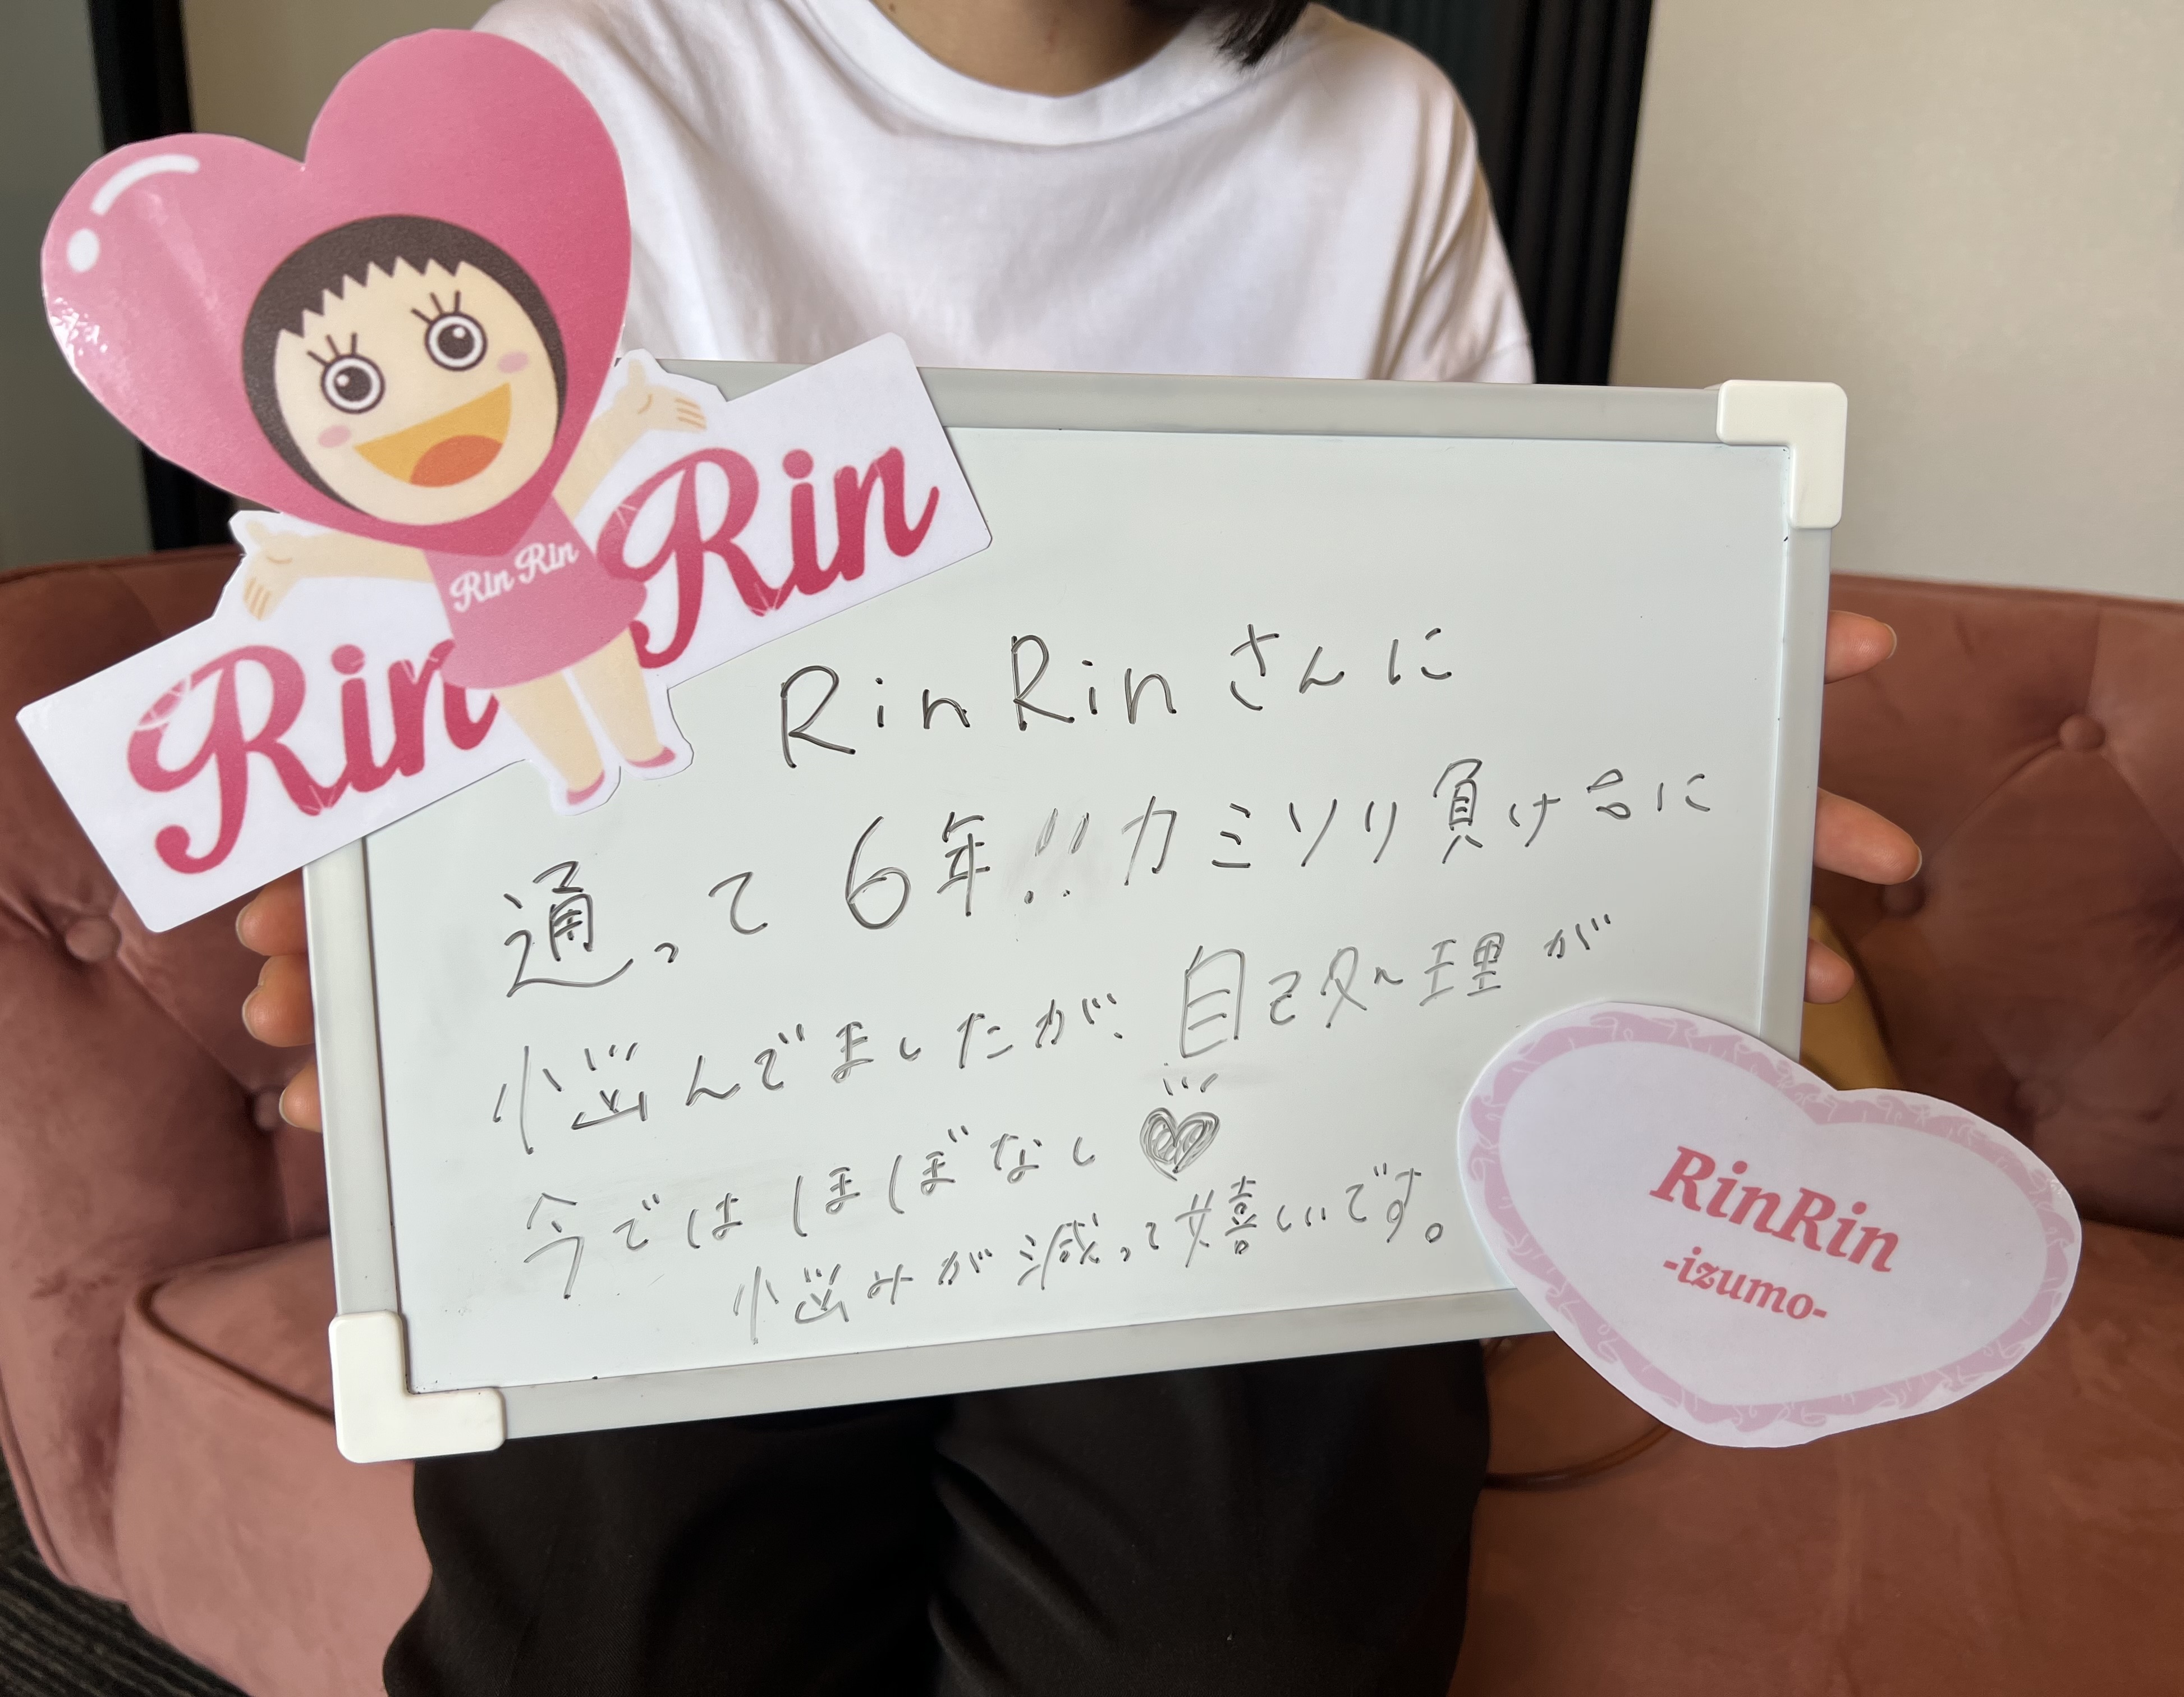 Rin Rin
Rin Rin
RinRinさんに
通って6年!!カミソリ負けなに
悩んでましたが、自己処理が
今ではほぼなし♡
悩みが減って嬉しいです。
RinRin
-izumo-